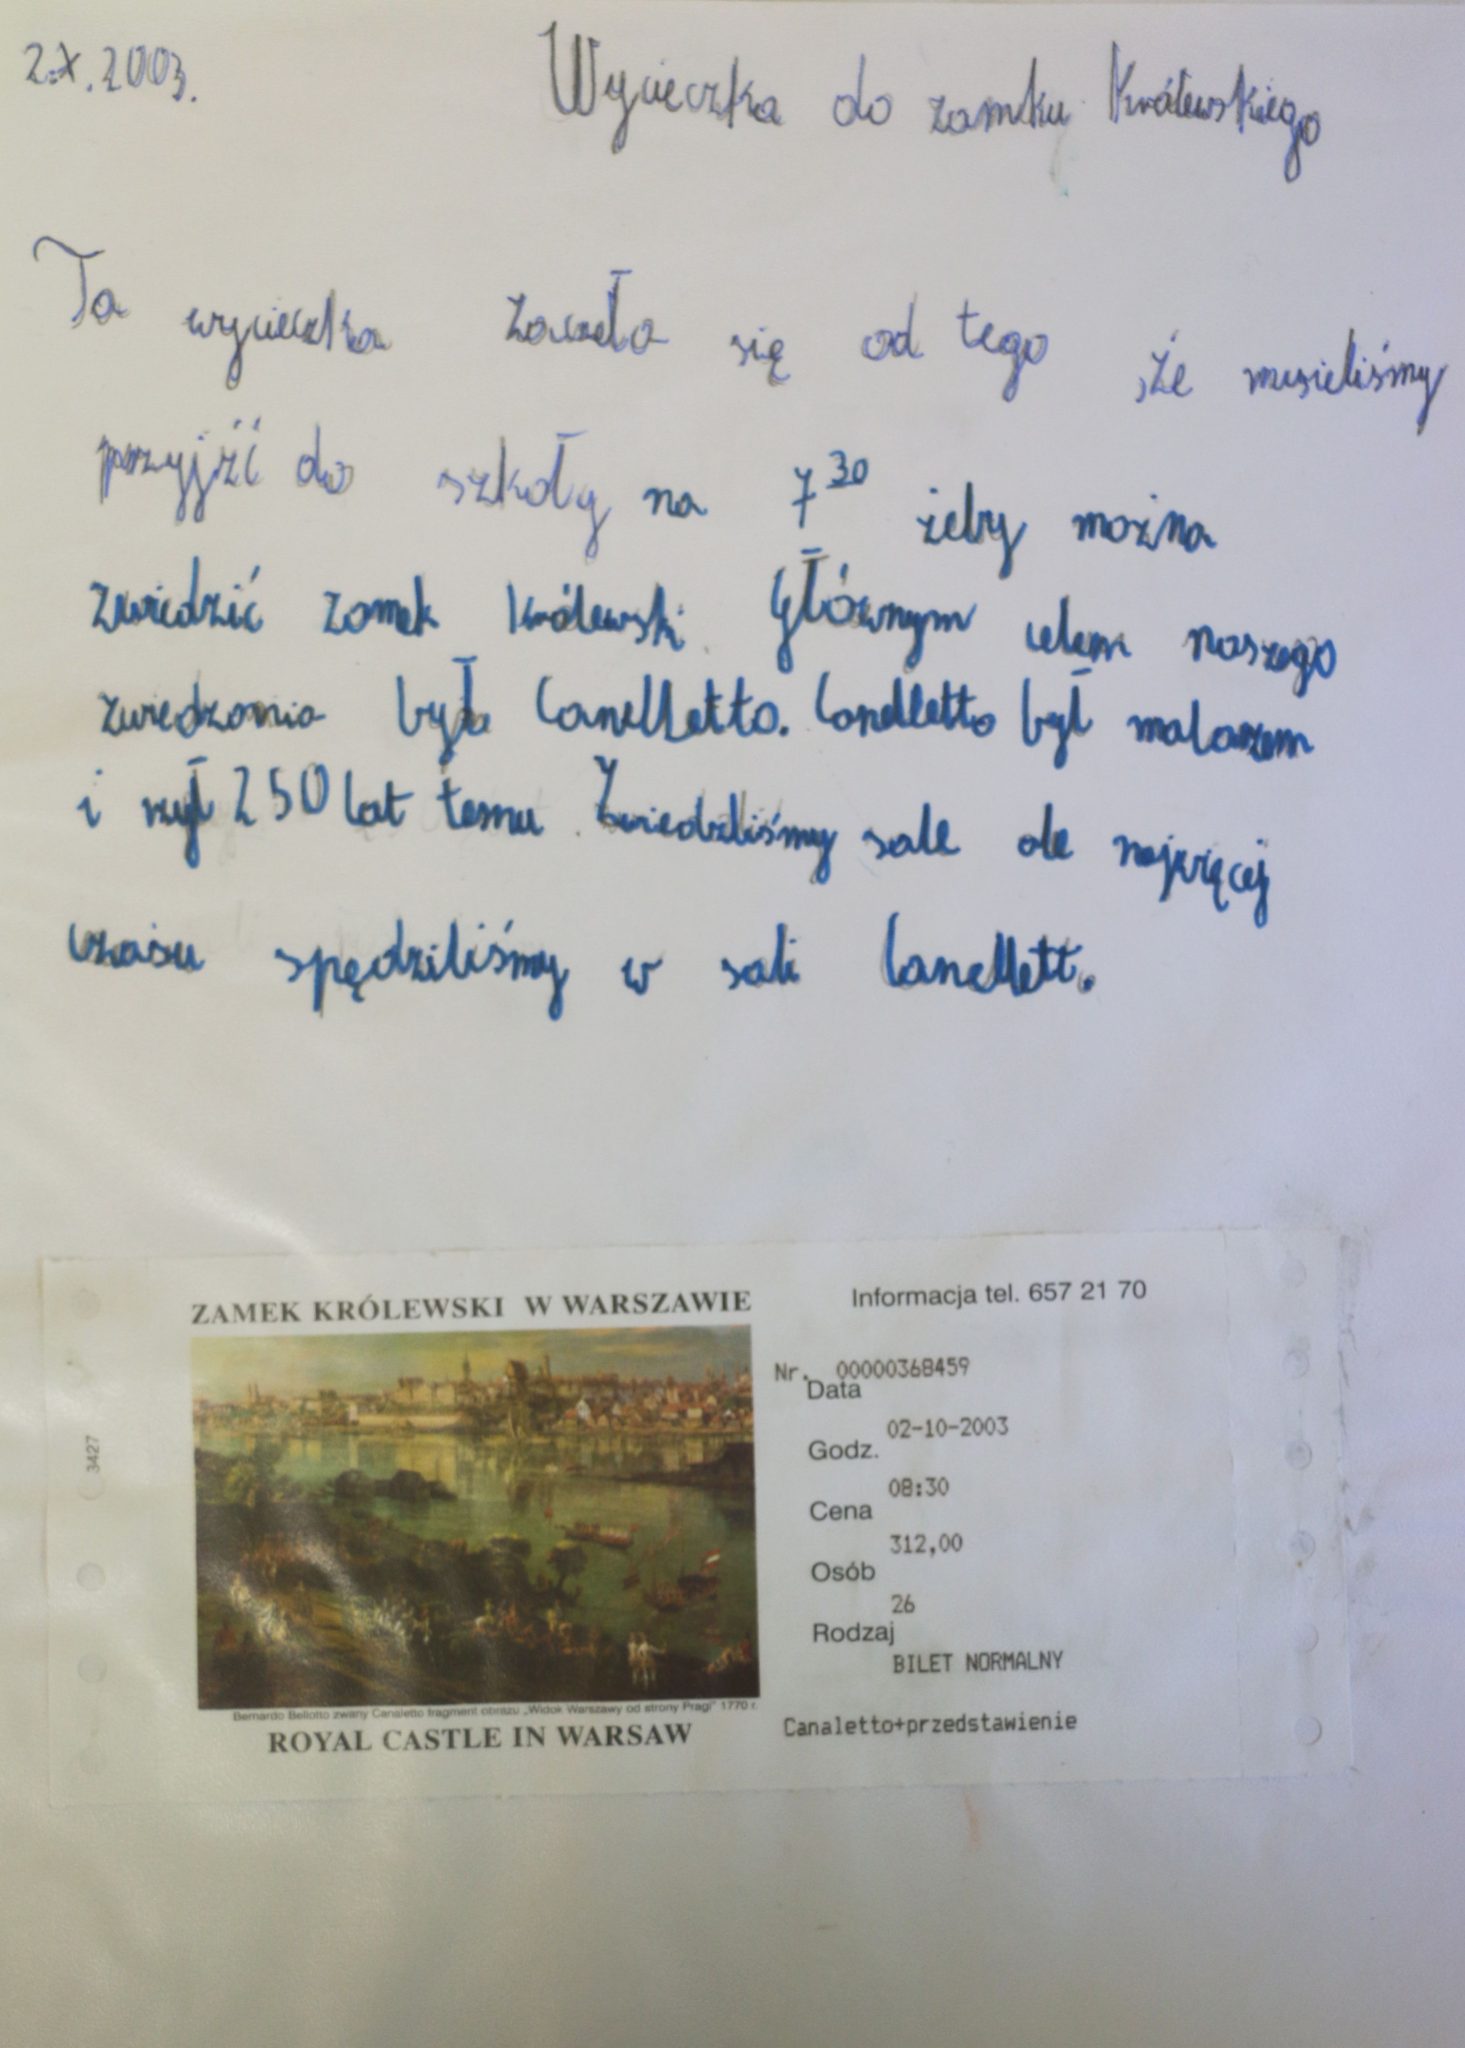 2.X.2003.
Wycieczka do zamku Królewskiego
Ta wycieczka zaczeła się od tego
,że musieliśmy
przyjźć do szkoły na 7 30 żeby można
zwiedzić zamek Królewski. Głównym celem naszego
zwiedzania była Canelletto. Canelletto był malarzem
i rzył 250 lat temu. Zwiedziliśmy sale ale najwięcej
czasu spędziliśmy w sali Canellett.
ZAMEK KRÓLEWSKI W WARSZAWIE
Informacja tel. 657 21 70
Nr. 00000368459
Data
02-10-2003
Godz.
08:30
Cena
312,00
Osób
26
Rodzaj
BILET NORMALNY
Canaletto+przedstawienie
3427
Bernardo Bellotto zwany Canaletto fragment obrazu „Widok Warszawy od strony Pragi" 1770 r.
ROYAL CASTLE IN WARSAW